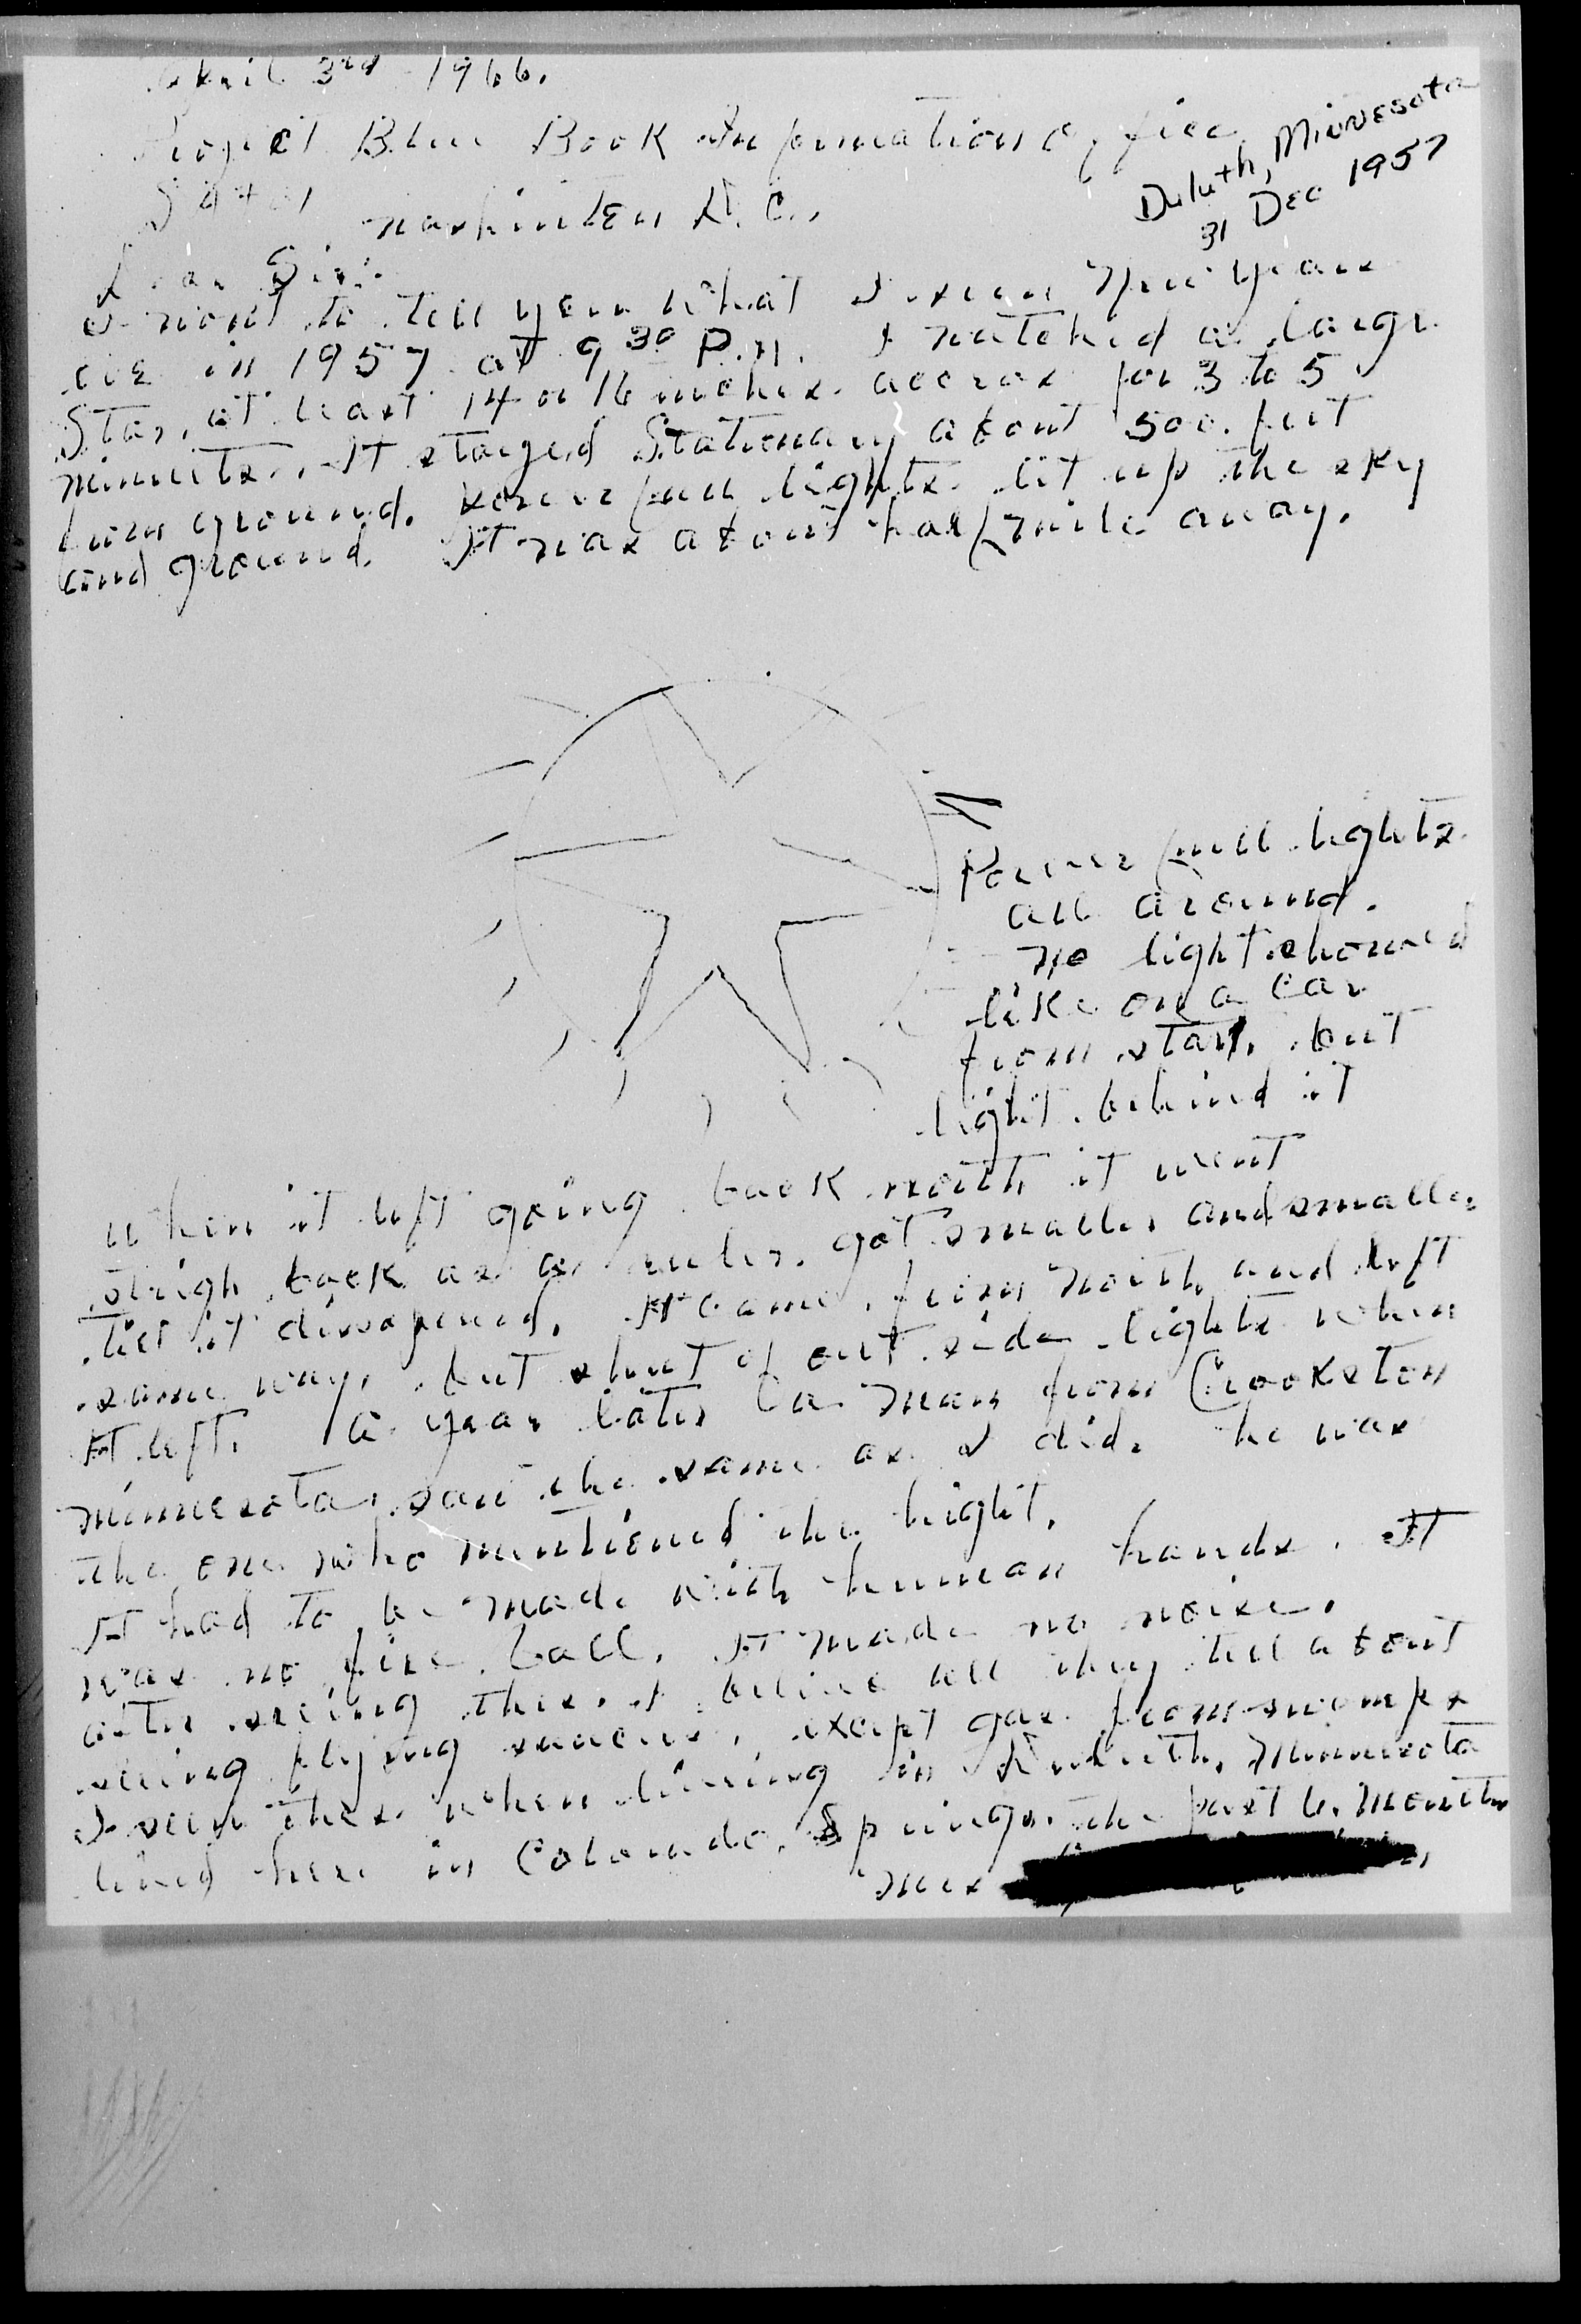 April 3rd 1966.
Project Blue Book Information Office
Duluth, Minnesota
31 Dec 1957
Washinten D.C.,
Dear Sir:
I want to tell you what I seen New Years
eve in 1957 at 9 30 P.M. I watched a large
Star, at least 14 or 16 inches accros for 3 to 5
minnits. It stayed Stationary about 500 feet
from ground. Powerfull lights lit up the sky
and ground. It was about half mile away.
Powerfull lights
all around.
no light showed
like on a car
from star, but
light behind it
When it left going back north it went
streigh back as a ruler. got smaller and smaller
till it dissapered. It came from North and left
same way, but shut of out side lights when
It left. A year later a man from Crookston
Minnesota saw the same as I did. he was
the one who mentioned the hight.
It had to be made with human hands. It
was no fire ball. It made no noise.
after seeing this I belive all they tell about
seeing flying saucers, except gas from swomps
I seen this when living in Duluth, Minnesota
lived here in Colorado Springs the past 6 months
Mrs